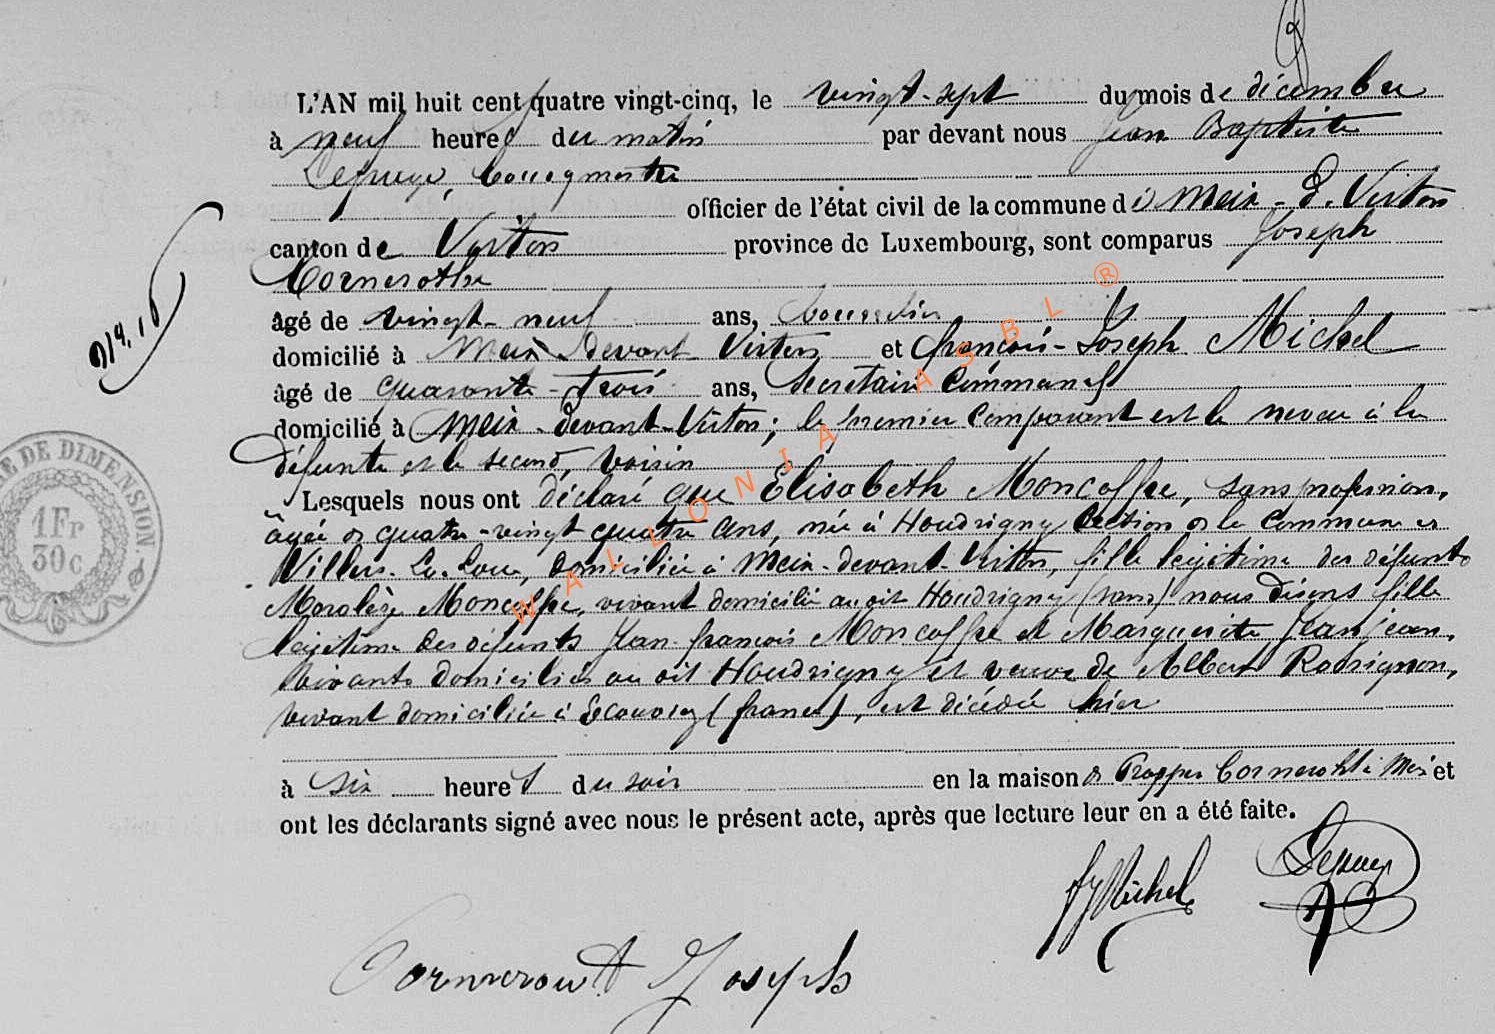 L'AN mil huit cent quatre vingt-cinq, le vingt-sept du mois de décembre
à neuf heures du matin par devant nous Jean Baptiste
Lepuye, bourgmestre
officier de l'état civil de la commune de Meix-d.-Virton
canton de Virton province de Luxembourg, sont comparus Joseph
Cornerotte
âgé de vingt-neuf ans,
domicilié à Meix devant Virton et françois-Joseph Michel
âgé de quarante-trois ans, secretaire communal
domicilié à Meix-devant-Virton; le premier comparant est le neveu à la
défunte et le second, voisin
Lesquels nous ont déclaré que Elisabeth Moncoffre, sans profession,
âgée de quatre-vingt quatre ans, née à Houdrigny section de la commune de
Villers-la-Loue, domiciliée à Meix-devant-Virton, fille légitime des défunts
Moncoffre, vivant domicilié au dit Houdrigny nous disons fille
légitime des défunts Jean-françois Moncoffre et Marguerite Jeanjean,
vivants domiciliés au dit Houdrigny et veuve de Albert Rossignon,
vivant domicilié à Ecouviez (france), est décédée hier
à six heures du soir en la maison de Prosper Cornerotte à Meix et
ont les déclarants signé avec nous le présent acte, après que lecture leur en a été faite.
fj Michel Lepuye
Cornerotte Joseph
DE DIMENSION.
1Fr
30c
WALLONIA ASBL ®